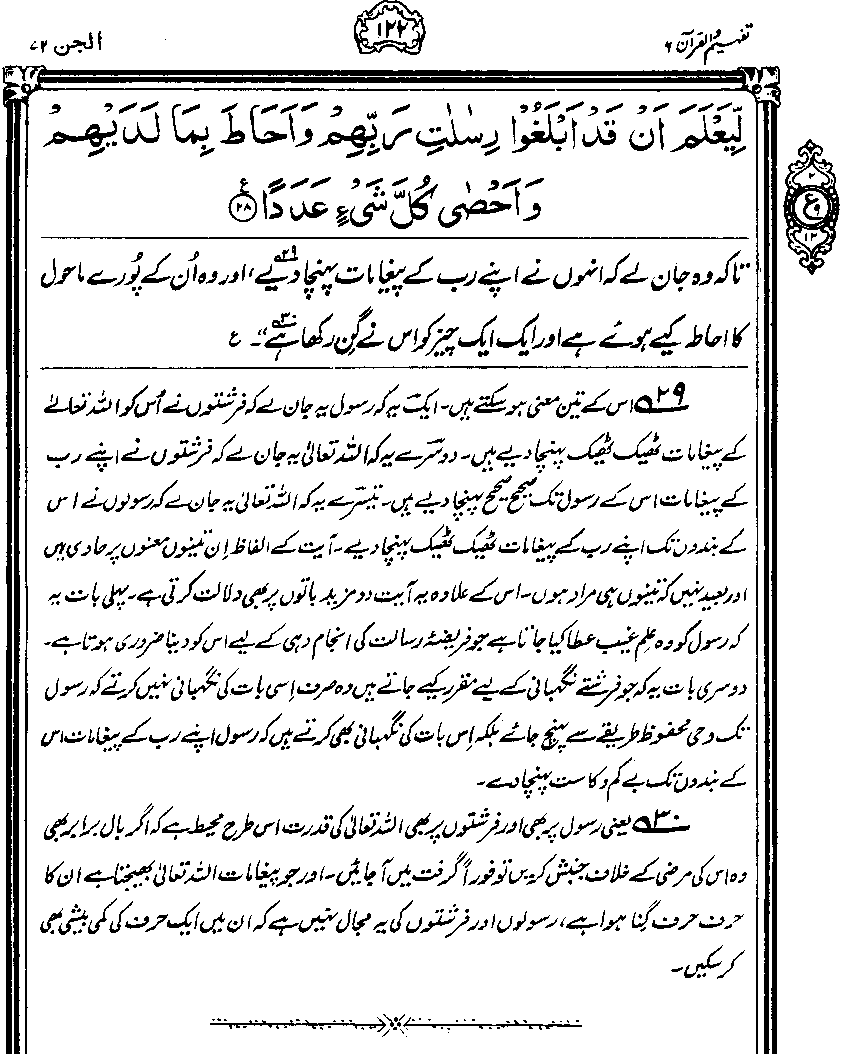 تفہیم القرآن ۶
۱۲۲
الجن ۷۲
لِّيَعْلَمَ اَنْ قَدْ اَبْلَغُوْا رِسٰلٰتِ رَبِّهِمْ وَاَحَاطَ بِمَا لَدَيْهِمْ
وَاَحْصٰى كُلَّ شَىْءٍ عَدَدًا ﴿۲۸﴾ ع
۲
ع
۹
۱۲
تاکہ وہ جان لے کہ انہوں نے اپنے رب کے پیغامات پہنچا دیے۲۹، اور وہ اُن کے پُورے ماحول
کا احاطہ کیے ہوئے ہے اور ایک ایک چیز کو اس نے گِن رکھا ہے۳۰“۔ ع
۲۹ اس کے تین معنی ہو سکتے ہیں۔ ایک یہ کہ رسول یہ جان لے کہ فرشتوں نے اُس کو اللہ تعالےٰ
کے پیغامات ٹھیک ٹھیک پہنچا دیے ہیں۔ دوسرے یہ کہ اللہ تعالیٰ یہ جان لے کہ فرشتوں نے اپنے رب
کے پیغامات اس کے رسول تک صحیح صحیح پہنچا دیے ہیں۔ تیسرے یہ کہ اللہ تعالیٰ یہ جان لے کہ رسولوں نے اس
کے بندوں تک اپنے رب کے پیغامات ٹھیک ٹھیک پہنچا دیے۔ آیت کے الفاظ اِن تینوں معنوں پر حاوی ہیں
اور بعید نہیں کہ تینوں ہی مراد ہوں۔ اس کے علاوہ یہ آیت دو مزید باتوں پر بھی دلالت کرتی ہے۔ پہلی بات یہ
کہ رسول کو وہ علم غیب عطا کیا جاتا ہے جو فریضۂ رسالت کی انجام دہی کے لیے اس کو دینا ضروری ہوتا ہے۔
دوسری بات یہ کہ جو فرشتے نگہبانی کے لیے مقرر کیے جاتے ہیں وہ صرف اِسی بات کی نگہبانی نہیں کرتے کہ رسول
تک وحی محفوظ طریقے سے پہنچ جائے بلکہ اِس بات کی نگہبانی بھی کرتے ہیں کہ رسول اپنے رب کے پیغامات اس
کے بندوں تک بے کم و کاست پہنچا دے۔
۳۰ یعنی رسول پر بھی اور فرشتوں پر بھی اللہ تعالیٰ کی قدرت اس طرح محیط ہے کہ اگر بال برابر بھی
وہ اس کی مرضی کے خلاف جنبش کریں تو فوراً گرفت میں آ جائیں۔ اور جو پیغامات اللہ تعالیٰ بھیجتا ہے ان کا
حرف حرف گِنا ہوا ہے، رسولوں اور فرشتوں کی یہ مجال نہیں ہے کہ ان میں ایک حرف کی کمی بیشی بھی
کر سکیں۔